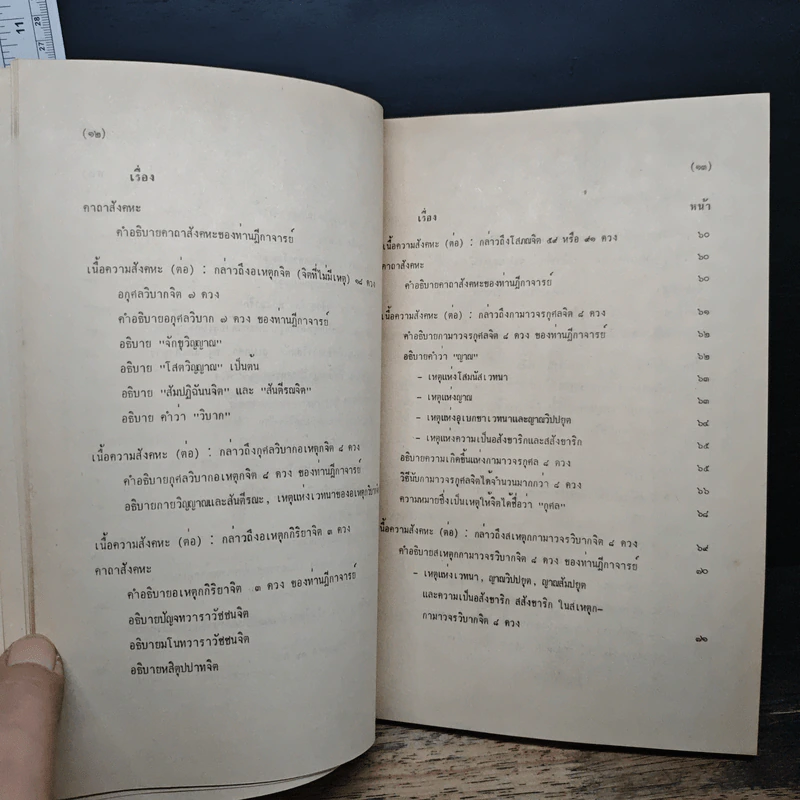 11
28
27
(๑๒)
เรื่อง
คาถาสังคหะ
คำอธิบายคาถาสังคหะของท่านฎีกาจารย์
เนื้อความสังคหะ (ต่อ) : กล่าวถึงอเหตุกจิต (จิตที่ไม่มีเหตุ) ๑๘ ดวง
อกุศลวิบากจิต ๗ ดวง
คำอธิบายอกุศลวิบาก ๗ ดวง ของท่านฎีกาจารย์
อธิบาย "จักขุวิญญาณ"
อธิบาย "โสตวิญญาณ" เป็นต้น
อธิบาย "สัมปฏิฉันนจิต" และ "สันตีรณจิต"
อธิบาย คำว่า "วิบาก"
เนื้อความสังคหะ (ต่อ) : กล่าวถึงกุศลวิบากอเหตุกจิต ๘ ดวง
คำอธิบายกุศลวิบากอเหตุกจิต ๘ ดวง ของท่านฎีกาจารย์
อธิบายกายวิญญาณและสันตีรณะ, เหตุแห่งเวทนาของอเหตุกวิบาก
เนื้อความสังคหะ (ต่อ) : กล่าวถึงอเหตุกกิริยาจิต ๓ ดวง
คาถาสังคหะ
คำอธิบายอเหตุกกิริยาจิต ๓ ดวง ของท่านฎีกาจารย์
อธิบายปัญจทวาราวัชชนจิต
อธิบายมโนทวาราวัชชนจิต
อธิบายหสิตุปปาทจิต
(๑๓)
เรื่อง หน้า
เนื้อความสังคหะ (ต่อ) : กล่าวถึงโสภณจิต ๕๙ หรือ ๙๑ ดวง ๖๐
คาถาสังคหะ ๖๐
คำอธิบายคาถาสังคหะของท่านฎีกาจารย์ ๖๐
เนื้อความสังคหะ (ต่อ) : กล่าวถึงกามาวจรกุศลจิต ๘ ดวง ๖๑
คำอธิบายกามาวจรกุศลจิต ๘ ดวง ของท่านฎีกาจารย์ ๖๒
อธิบายคำว่า "ญาณ" ๖๒
- เหตุแห่งโสมนัสเวทนา ๖๓
- เหตุแห่งญาณ ๖๓
- เหตุแห่งอุเบกขาเวทนาและญาณวิปปยุต ๖๔
- เหตุแห่งความเป็นอสังขาริกและสสังขาริก ๖๕
อธิบายความเกิดขึ้นแห่งกามาวจรกุศล ๘ ดวง ๖๕
วิธีนับกามาวจรกุศลจิตได้จำนวนมากกว่า ๘ ดวง ๖๖
ความหมายซึ่งเป็นเหตุให้จิตได้ชื่อว่า "กุศล" ๖๘
เนื้อความสังคหะ (ต่อ) : กล่าวถึงสเหตุกกามาวจรวิบากจิต ๘ ดวง ๖๙
คำอธิบายสเหตุกกามาวจรวิบากจิต ๘ ดวง ของท่านฎีกาจารย์ ๗๐
- เหตุแห่งเวทนา, ญาณวิปปยุต, ญาณสัมปยุต
และความเป็นอสังขาริก สสังขาริก ในสเหตุก-
กามาวจรวิบากจิต ๘ ดวง